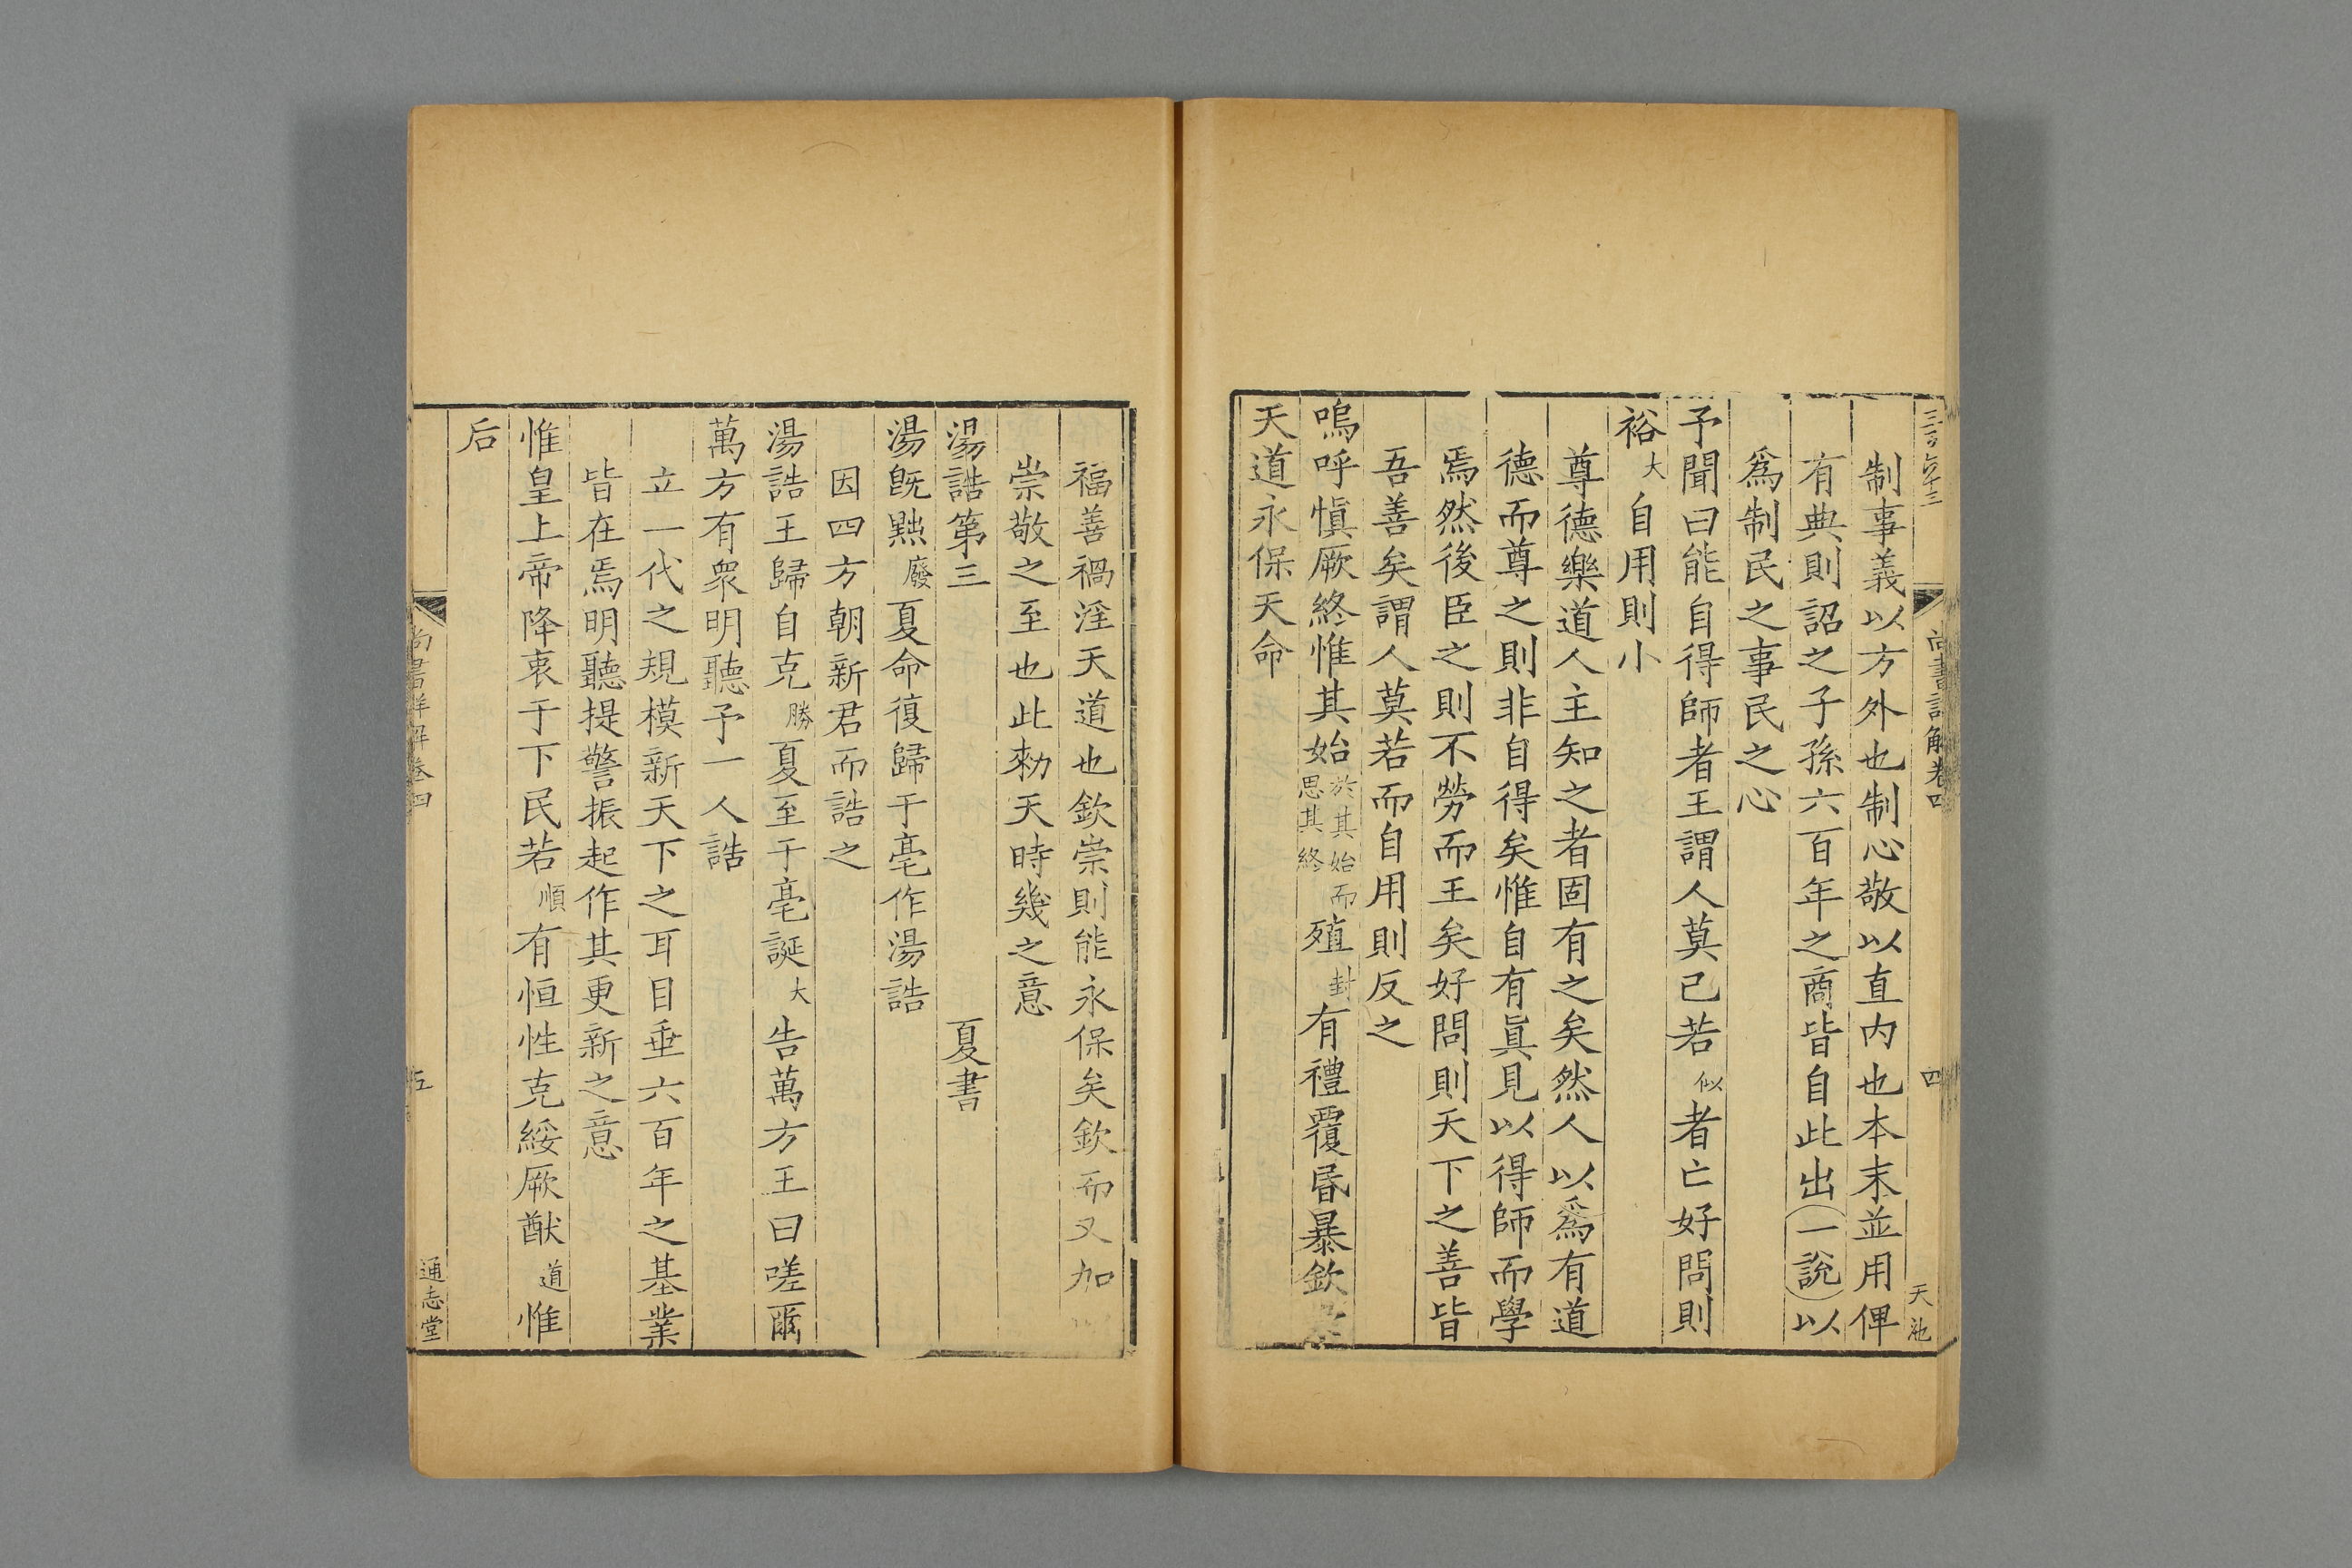 尚書詳解卷四
四
天池
制事義以方外也制心敬以直内也本末並用俾
有典則詔之子孫六百年之商皆自此出一說以
爲制民之事民之心
予聞曰能自得師者王謂人莫己若似者亡好問則
裕大自用則小
尊德樂道人主知之者固有之矣然人以爲有道
德而尊之則非自得矣惟自有眞見以得師而學
焉然後臣之則不勞而王矣好問則天下之善皆
吾善矣謂人莫若而自用則反之
嗚呼愼厥終惟其始於其始而思其終殖封有禮覆昬暴欽
天道永保天命
福善禍淫天道也欽崇則能永保矣欽而又加
崇敬之至也此勑天時幾之意
湯誥第三 夏書
湯旣黜廢夏命復歸于亳作湯誥
因四方朝新君而誥之
湯誥王歸自克勝夏至于亳誕大告萬方王曰嗟爾
萬方有衆明聽予一人誥
立一代之規模新天下之耳目垂六百年之基業
皆在焉明聽提警振起作其更新之意
惟皇上帝降衷于下民若順有恒性克綏厥猷道惟
后
尚書詳解卷四
五
通志堂